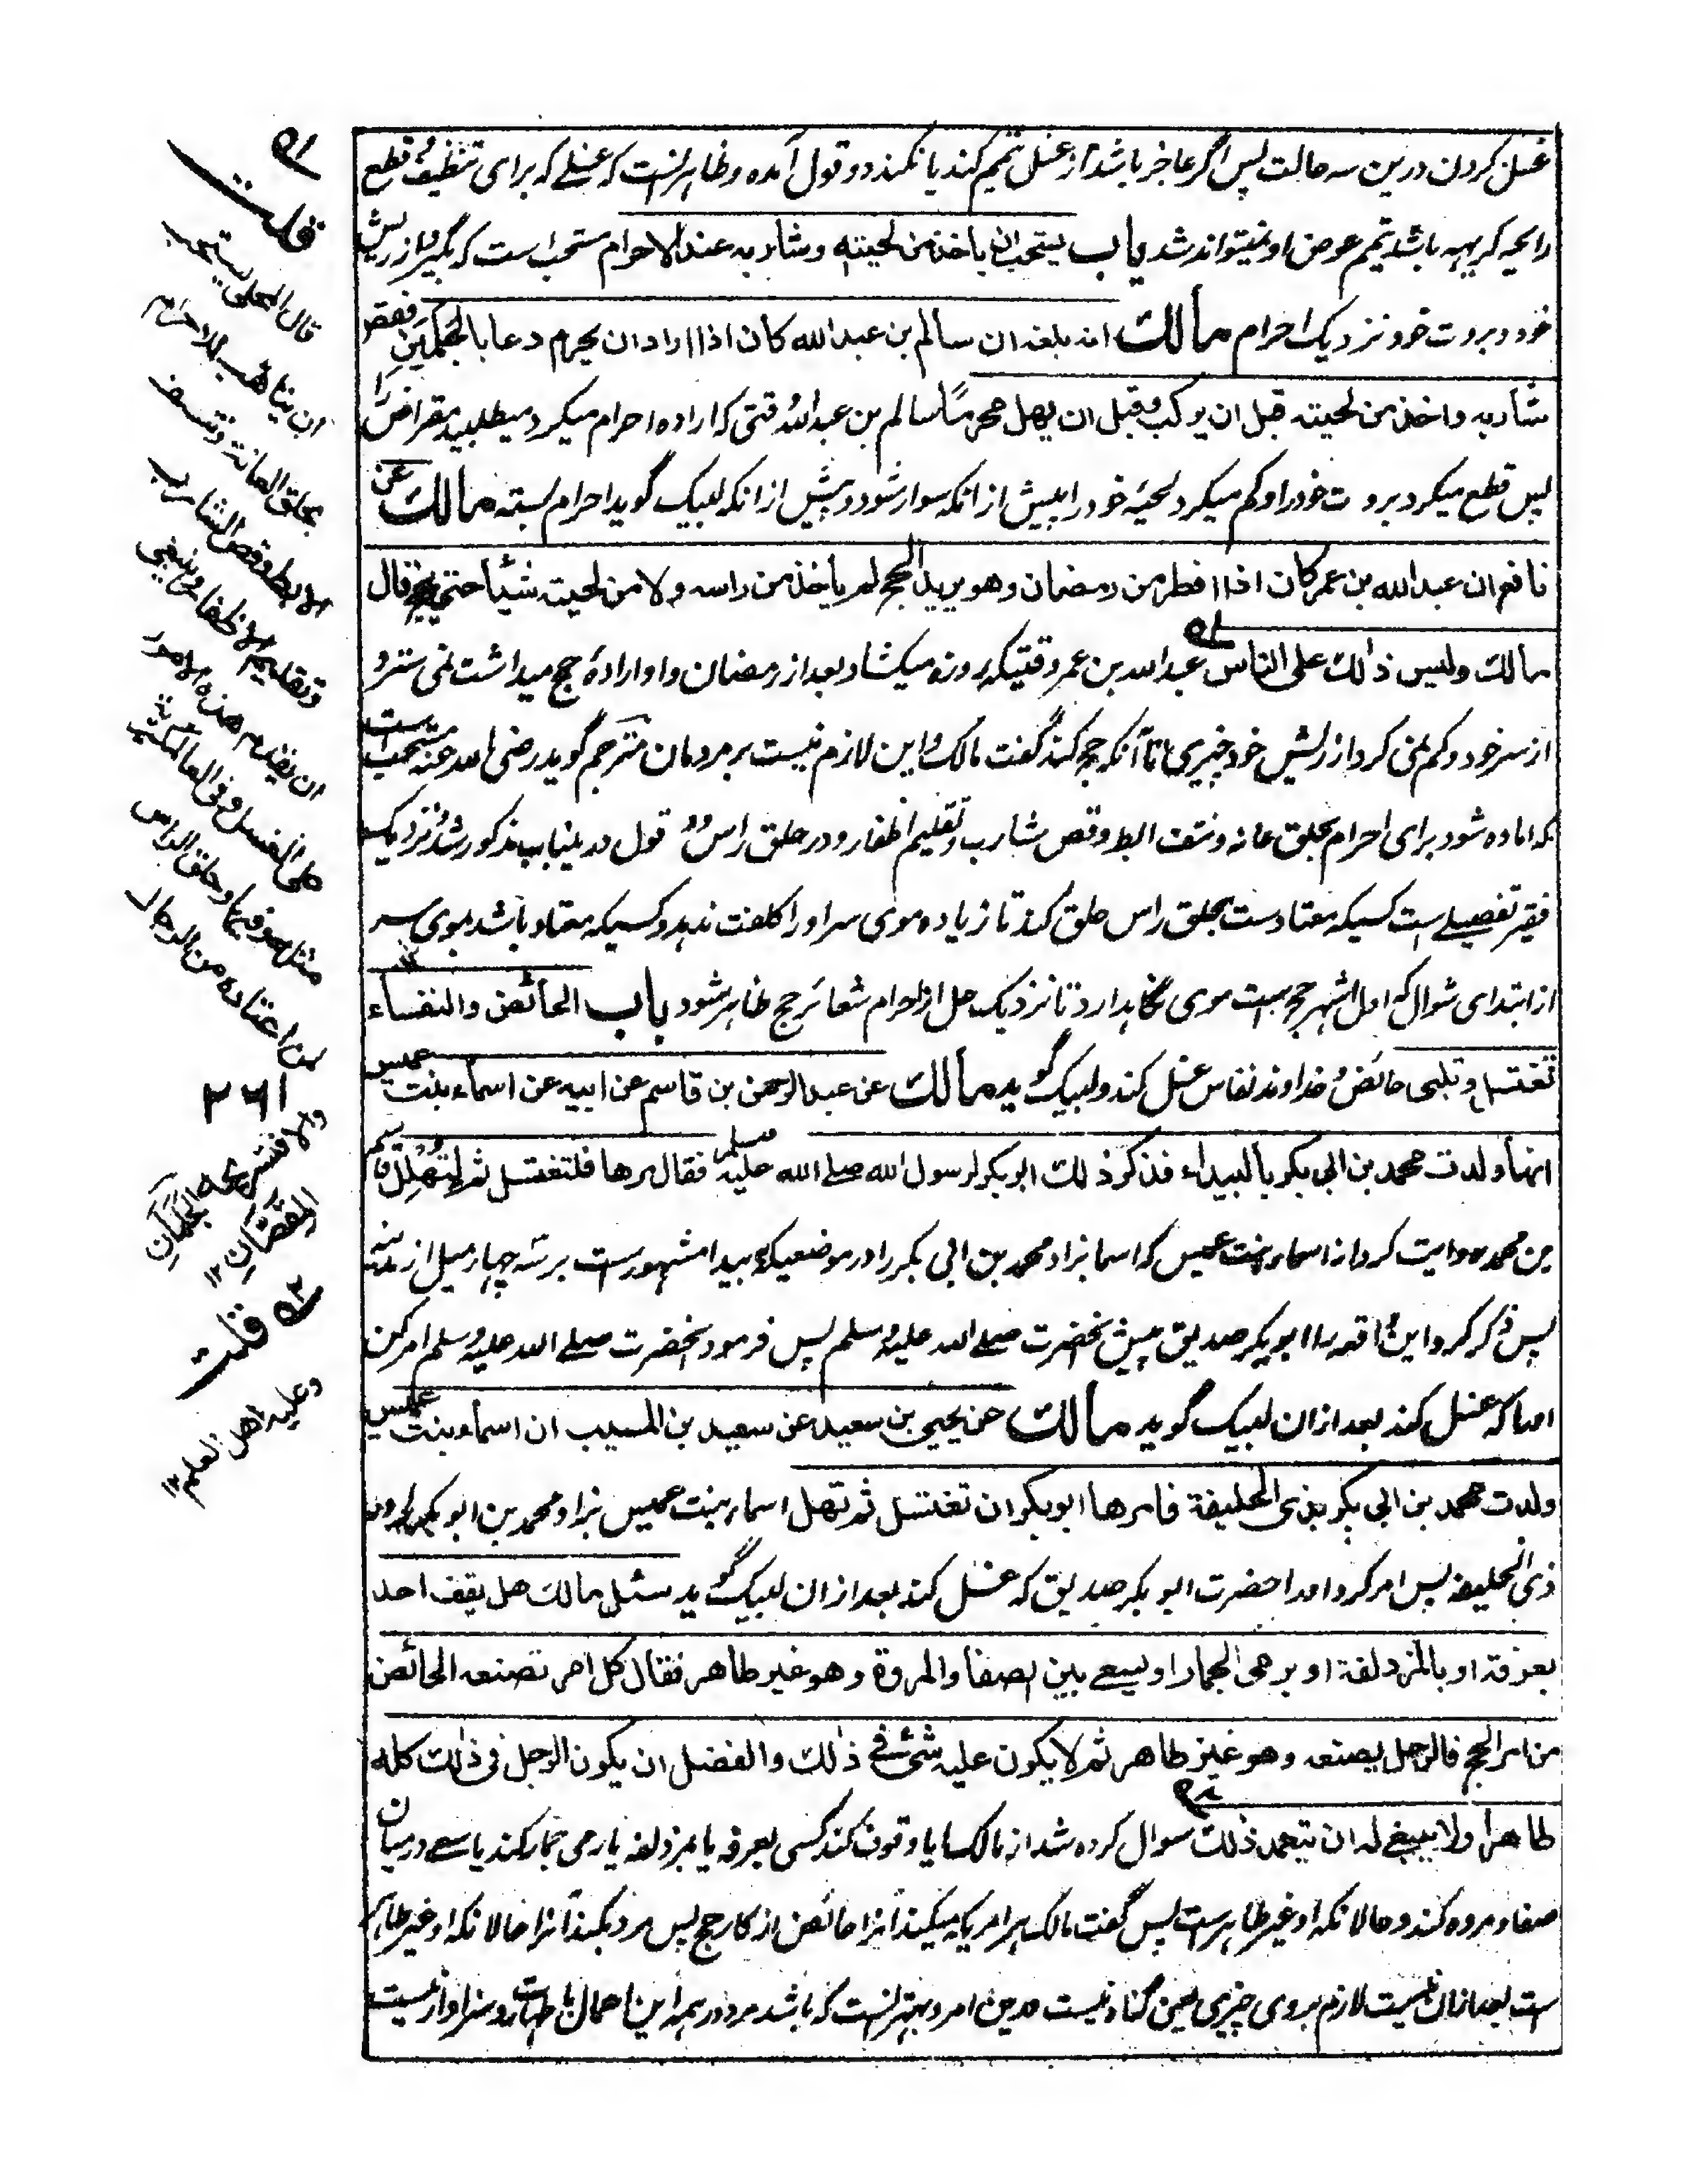 غسل کردن درین سه حالت پس اگر عاجز باشد از غسل تیمم کند یا نکند دو قول آمده و ظاهر آنست که غسلے که برای تنظیف و قطع
رایحه کریهه باشد تیمم عوض او نمیتواند شد باب یستحب ان یاخذ من لحیته وشاربه عند الاحرام مستحب است که بگیرد از ریش
خود و بروت خود نزدیک احرام مالك انه بلغه ان سالم بن عبد الله کان اذا اراد ان یحرم دعا بالجَلَمَینِ فقص
شاربه واخذ من لحیته قبل ان یرکب وقبل ان یهل محرمًا سالم بن عبد الله وقتی که اراده احرام میکرد میطلبید مقراض را
پس قطع میکرد بروت خود را و کم میکرد لحیهٔ خود را پیش از انکه سوار شود و پیش از انکه لبیک گوید احرام بسته مالك عن
نافع ان عبد الله بن عمر کان اذا افطر من رمضان وهو یرید الحج لم یاخذ من راسه ولا من لحیته شیئًا حتی یحج قال
مالك ولیس ذٰلك علی الناس عبد الله بن عمر وقتیکه روزه میکشاد بعد از رمضان و او ارادهٔ حج میداشت نمی سترد
از سر خود و کم نمی کرد از ریش خود چیزی را تا آنکه حج کند گفت مالک و این لازم نیست بر مردمان مترجم گوید رضی الله عنه مستحب است
که اماده شود برای احرام بحلق عانه و نتف ابط و قص شارب و تقلیم اظفار و در حلق راس دو قول درینباب مذکور شد و نزدیک
فقیر تفصیلے است کسیکه معتادست بحلق راس حلق کند تا زیاده موی سر او را کلفت ندهد و کسیکه معتاد باشد بموی سر
از ابتدای شوال که اول اشهر حج ست موی نگاهدارد تا نزدیک حل از احرام شعائر حج ظاهر شود باب الحائض والنفساء
تغتسل وتلبی حائض و خداوند نفاس غسل کند و لبیک گوید مالك عن عبد الرحمن بن قاسم عن ابیه عن اسماء بنت عمیس
انها ولدت محمد بن ابی بکر بالبیداء فذکر ذٰلك ابو بکر لرسول الله صلے الله علیه وسلم فقال مرها فلتغتسل ثم لتهلل قاسم
بن محمد روایت کرد از اسماء بنت عمیس که اسما بزاد محمد بن ابی بکر را در موضعیکه به بیدا مشهورست بر سه چهار میل از مدینه
پس ذکر کرد این واقعه را ابو بکر صدیق پیش آنحضرت صلے الله علیه وسلم پس فرمود آنحضرت صلے الله علیه وسلم امر کن
اورا که غسل کند بعد ازان لبیک گوید مالك عن یحیی بن سعید عن سعید بن المسیب ان اسماء بنت عمیس
ولدت محمد بن ابی بکر بذی الحلیفة فامرها ابو بکر ان تغتسل ثم تهل اسماء بنت عمیس بزاد محمد بن ابو بکر را در
ذی الحلیفه پس امر کرد اورا حضرت ابو بکر صدیق که غسل کند بعد ازان لبیک گوید سئل مالك هل یقف احد
بعرفة او بالمزدلفة او یرمی الجمار او یسعے بین الصفا والمروة وهو غیر طاهر فقال کل امر تصنعه الحائض
من امر الحج فالرجل یصنعه وهو غیر طاهر ثم لا یکون علیه شئ فے ذٰلك والفضل ان یکون الرجل فی ذٰلك کله
طاهرًا ولا ینبغے له ان یتعمد ذٰلك سوال کرده شد از مالک آیا وقوف کند کسی بعرفه یا بمزدلفه یا رمی جمار کند یا سعے درمیان
صفا و مروه کند و حالانکه او غیر طاهرست پس گفت مالک هر امریکه میکند آنرا حائض از کار حج پس مرد بکند آنرا حالانکه او غیر طاهر
ست بعد ازان نیست لازم بروی چیزی یعنی گناه نیست درین امر و بهتر آنست که باشد مرد در همه این اعمال با طهارت و سزاوار نیست
قلت
قال المحلی یستحب
ان یتاهب للاحرام
بحلق العانة ونتف
الابط وقص الشارب
وتقلیم الاظفار وینبغی
ان یقدم هذه الامور
علی الغسل وفی العالمگیریة
مثله وفیها وحلق الراس
لمن اعتاده من الرجال
الجلمان
المقصان ١٢
قلت
وعلیه اهل العلم ١٢